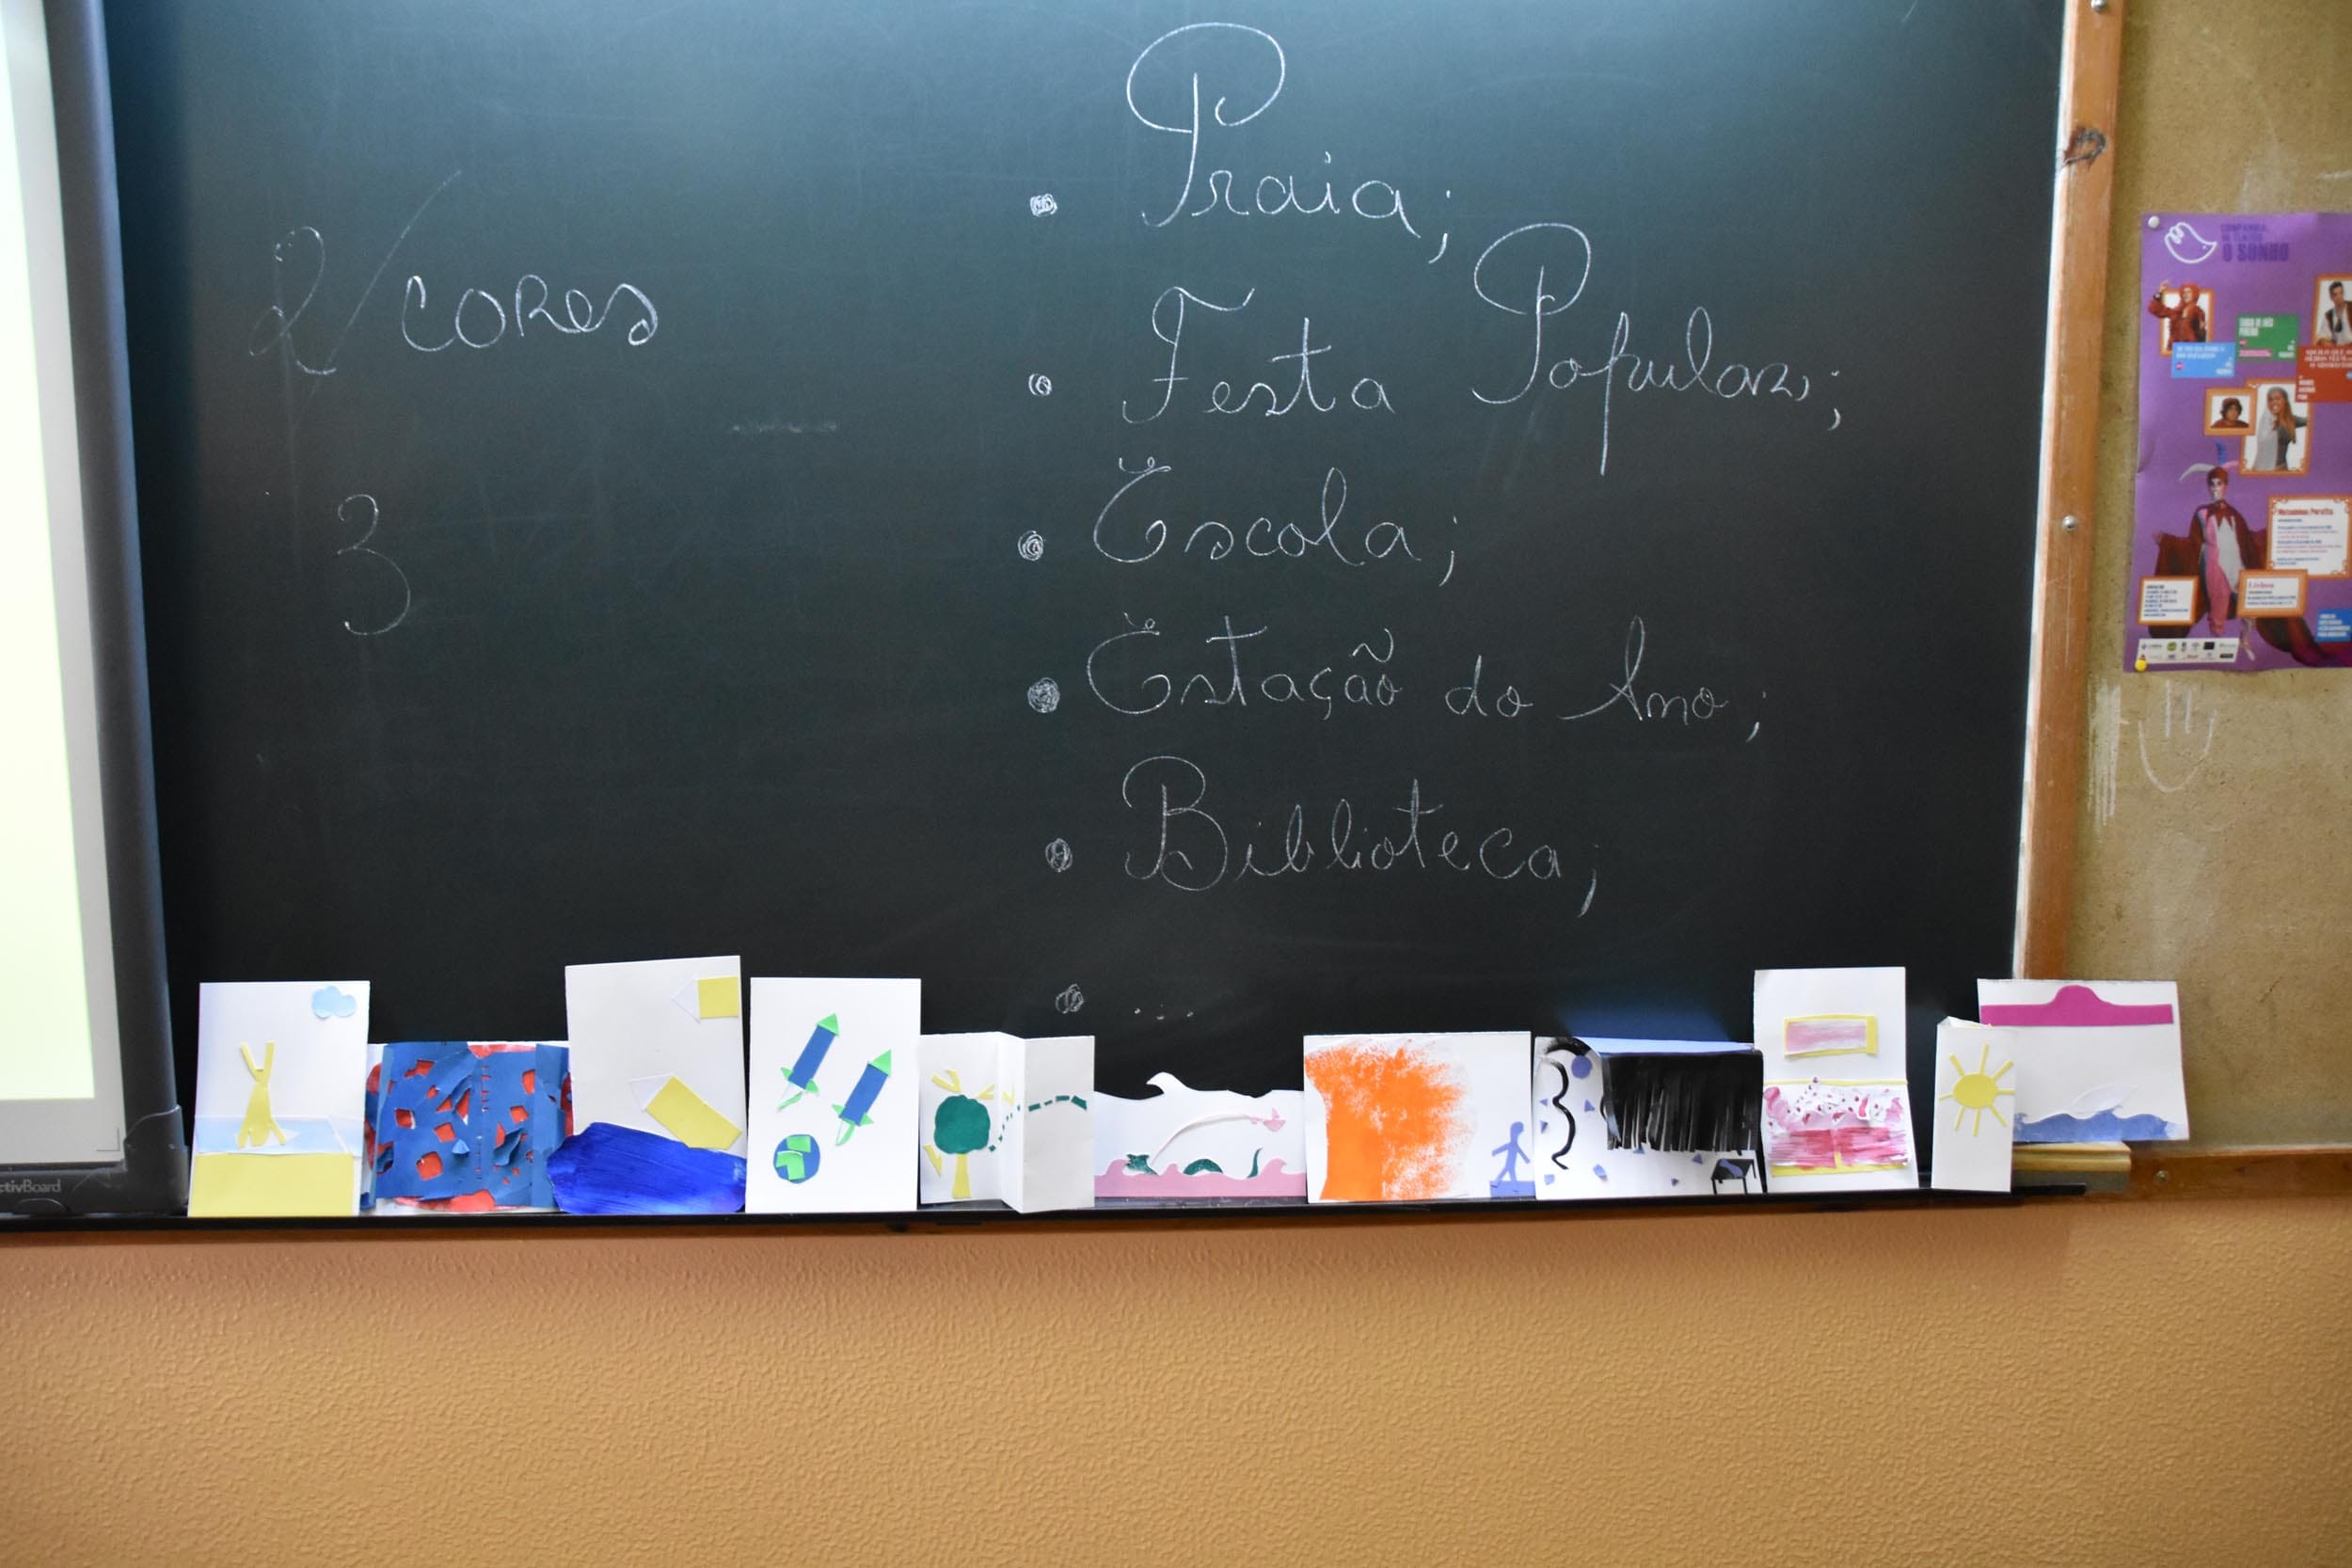 2/ CORES
3
• Praia;
• Festa Popular;
• Escola;
• Estação do Ano;
• Biblioteca;
• ...
O SONHO
ctivBoard